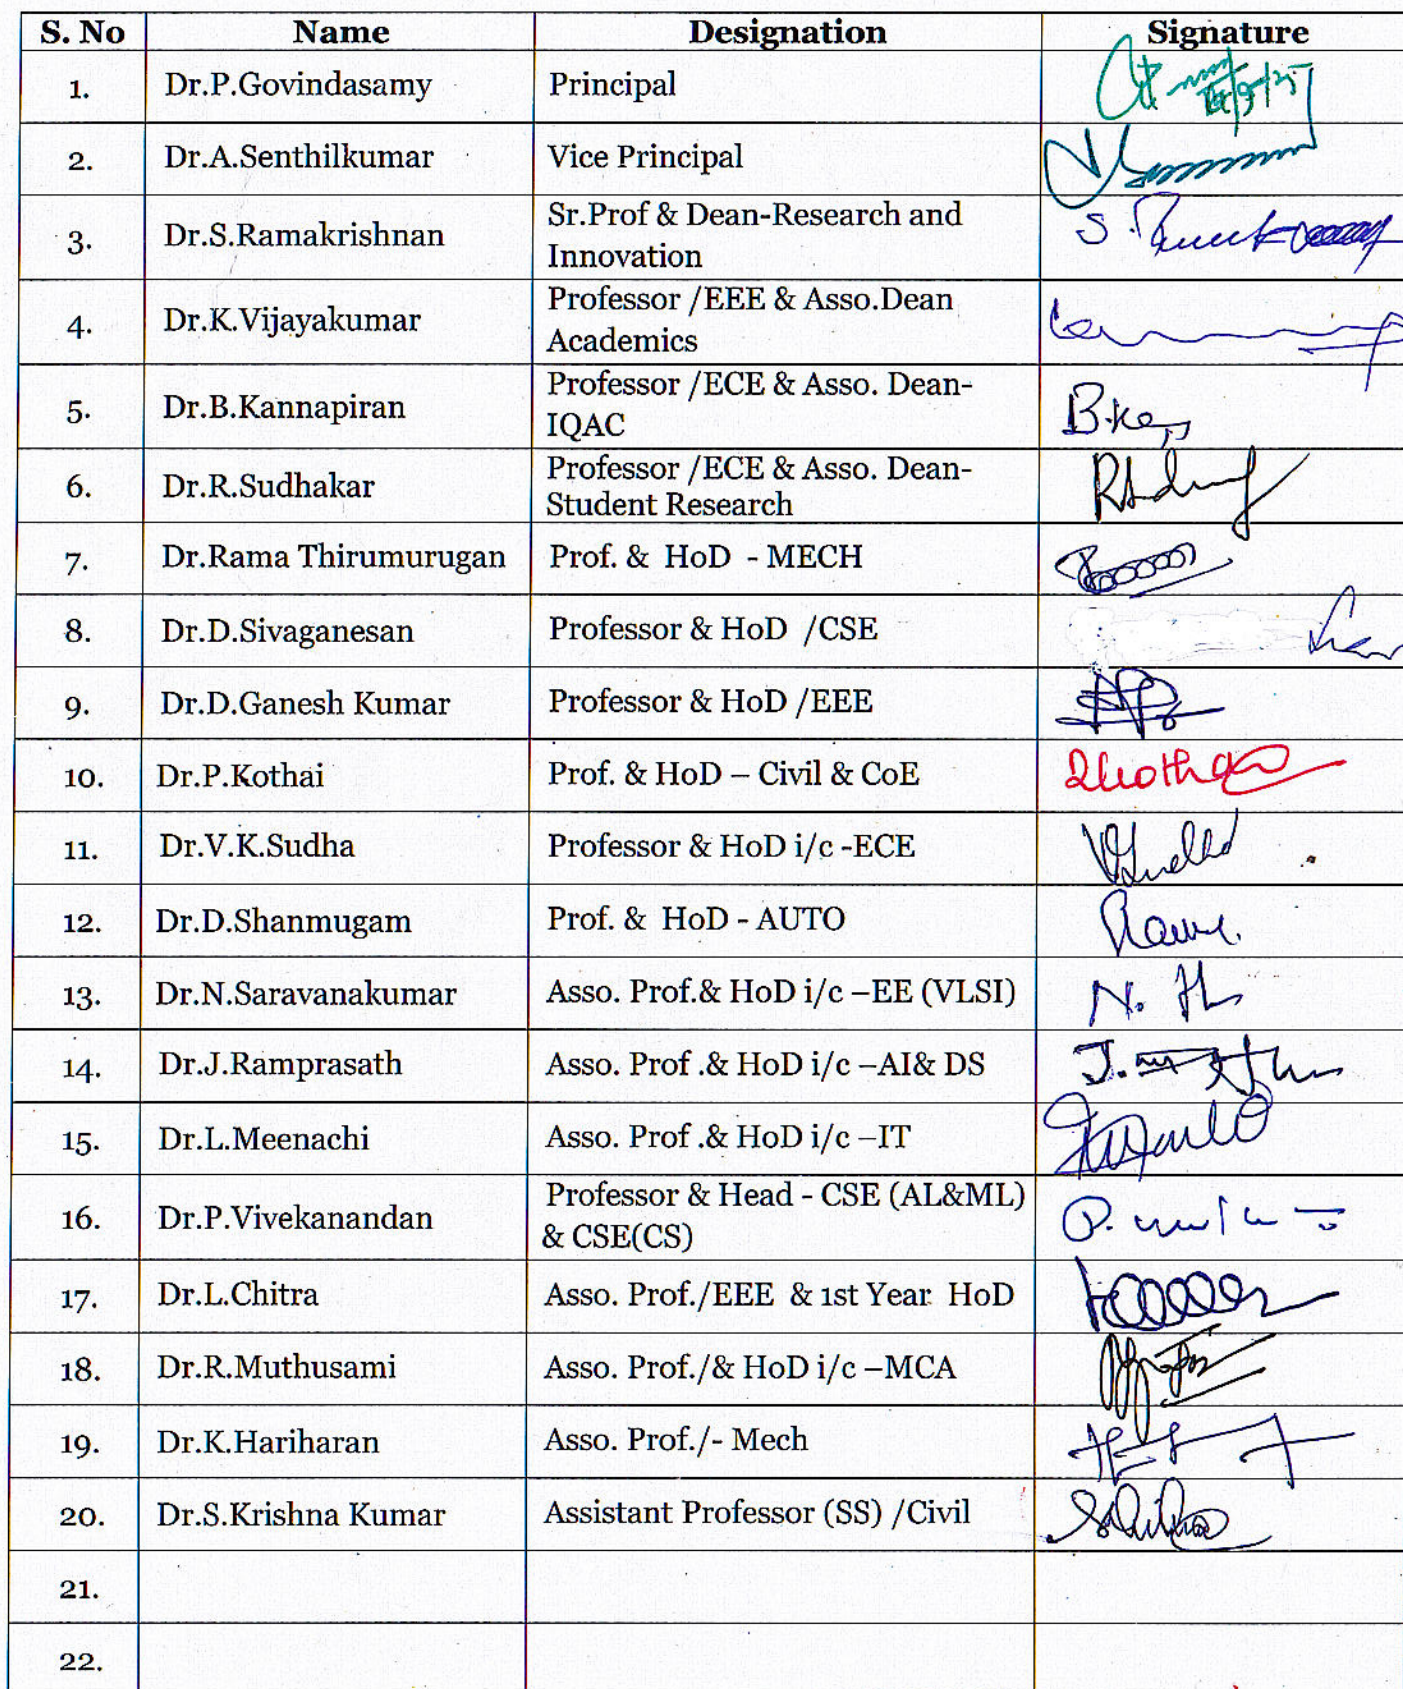 S. No Name Designation Signature
1. Dr.P.Govindasamy Principal
2. Dr.A.Senthilkumar Vice Principal
3. Dr.S.Ramakrishnan Sr.Prof & Dean-Research and
Innovation
4. Dr.K.Vijayakumar Professor /EEE & Asso.Dean
Academics
5. Dr.B.Kannapiran Professor /ECE & Asso. Dean-
IQAC
6. Dr.R.Sudhakar Professor /ECE & Asso. Dean-
Student Research
7. Dr.Rama Thirumurugan Prof. & HoD - MECH
8. Dr.D.Sivaganesan Professor & HoD /CSE
9. Dr.D.Ganesh Kumar Professor & HoD /EEE
10. Dr.P.Kothai Prof. & HoD – Civil & CoE
11. Dr.V.K.Sudha Professor & HoD i/c -ECE
12. Dr.D.Shanmugam Prof. & HoD - AUTO
13. Dr.N.Saravanakumar Asso. Prof.& HoD i/c –EE (VLSI)
14. Dr.J.Ramprasath Asso. Prof .& HoD i/c –AI& DS
15. Dr.L.Meenachi Asso. Prof .& HoD i/c –IT
16. Dr.P.Vivekanandan Professor & Head - CSE (AL&ML)
& CSE(CS)
17. Dr.L.Chitra Asso. Prof./EEE & 1st Year HoD
18. Dr.R.Muthusami Asso. Prof./& HoD i/c –MCA
19. Dr.K.Hariharan Asso. Prof./- Mech
20. Dr.S.Krishna Kumar Assistant Professor (SS) /Civil
21.
22.